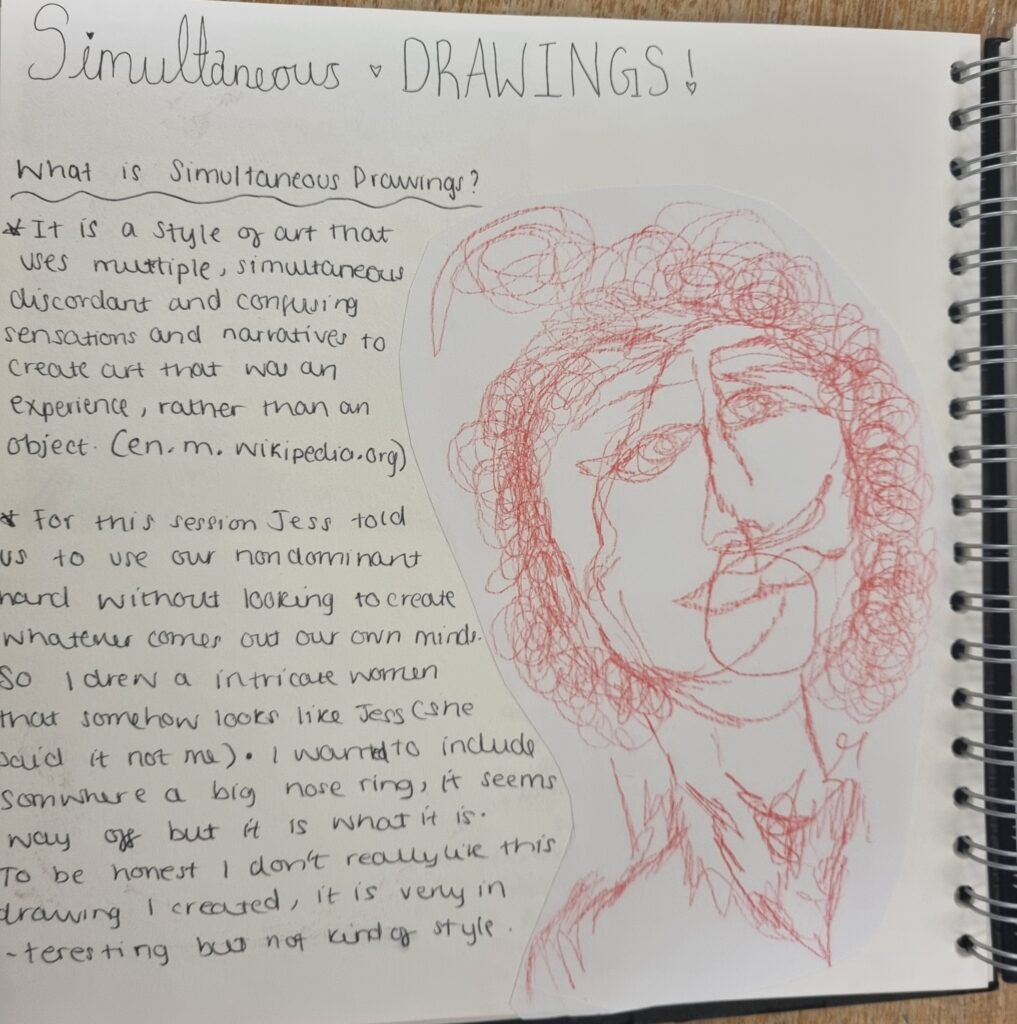 Simultaneous ♡ DRAWINGS!
What is Simultaneous Drawings?
* It is a style of art that
uses multiple, simultaneous
discordant and confusing
sensations and narratives to
create art that was an
experience, rather than an
object. (en.m.wikipedia.org)
* For this session Jess told
us to use our nondominant
hand without looking to create
whatever comes out our own minds.
So I drew a intricate women
that somehow looks like Jess (she
said it not me). I wanted to include
somwhere a big nose ring, it seems
way off but it is what it is.
To be honest I don't really like this
drawing I created, it is very in
-teresting but not kind of style.